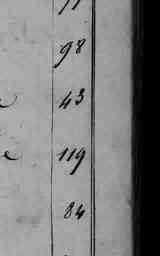 98
43
119
84